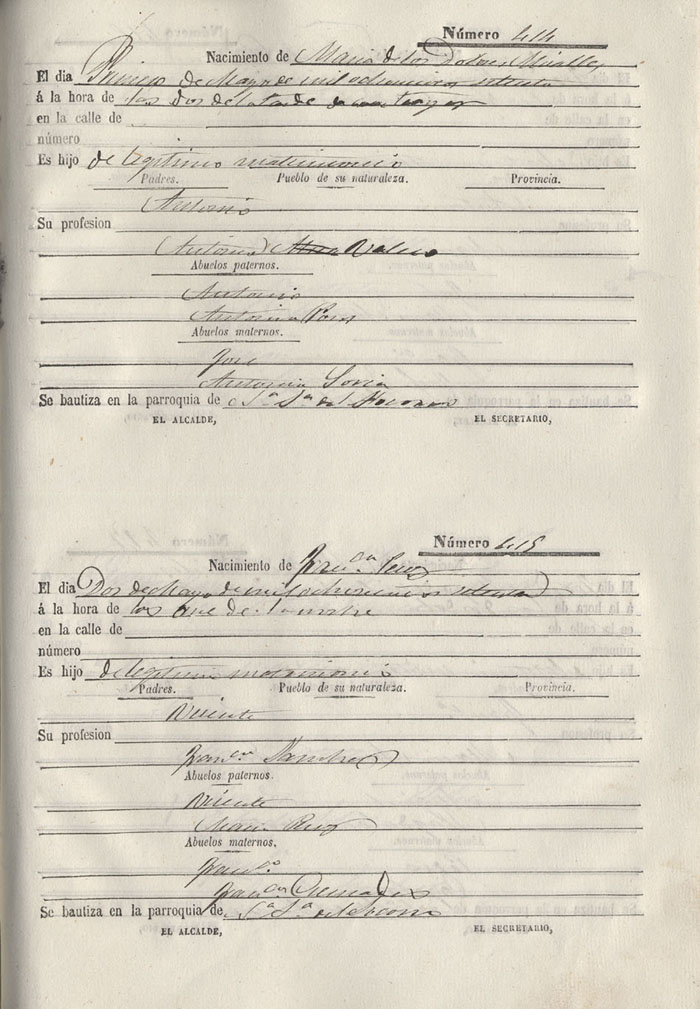 Número 414
Nacimiento de Maria de los Dolores Miralles
El dia Primero de Mayo de mil ochocientos setenta
á la hora de las dos de la tarde
en la calle de
número
Es hijo de legitimo matrimonio
Padres. Pueblo de su naturaleza. Provincia.
Antonio
Su profesion
Antonia
Abuelos paternos.
Antonio
Antonia Pons
Abuelos maternos.
José
Antonia Soria
Se bautiza en la parroquia de Sª Sª del Socorro
EL ALCALDE, EL SECRETARIO,
Número 415
Nacimiento de Franca Perez
El dia Dos de Mayo de mil ochocientos setenta
á la hora de las once de la noche
en la calle de
número
Es hijo de legitimo matrimonio
Padres. Pueblo de su naturaleza. Provincia.
Vicente
Su profesion
Franca Sanchez
Abuelos paternos.
Vicente
Maria Ruiz
Abuelos maternos.
Franco
Franca
Se bautiza en la parroquia de Sª Sª del Socorro
EL ALCALDE, EL SECRETARIO,